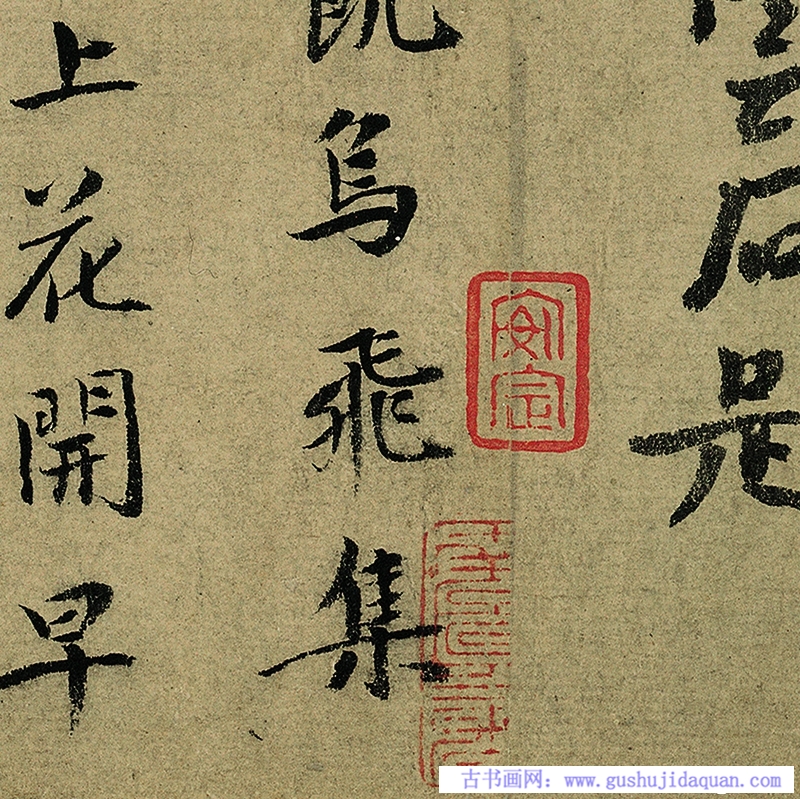 是
烏飛集
上花開早
安定
古书画网：www.gushujidaquan.com